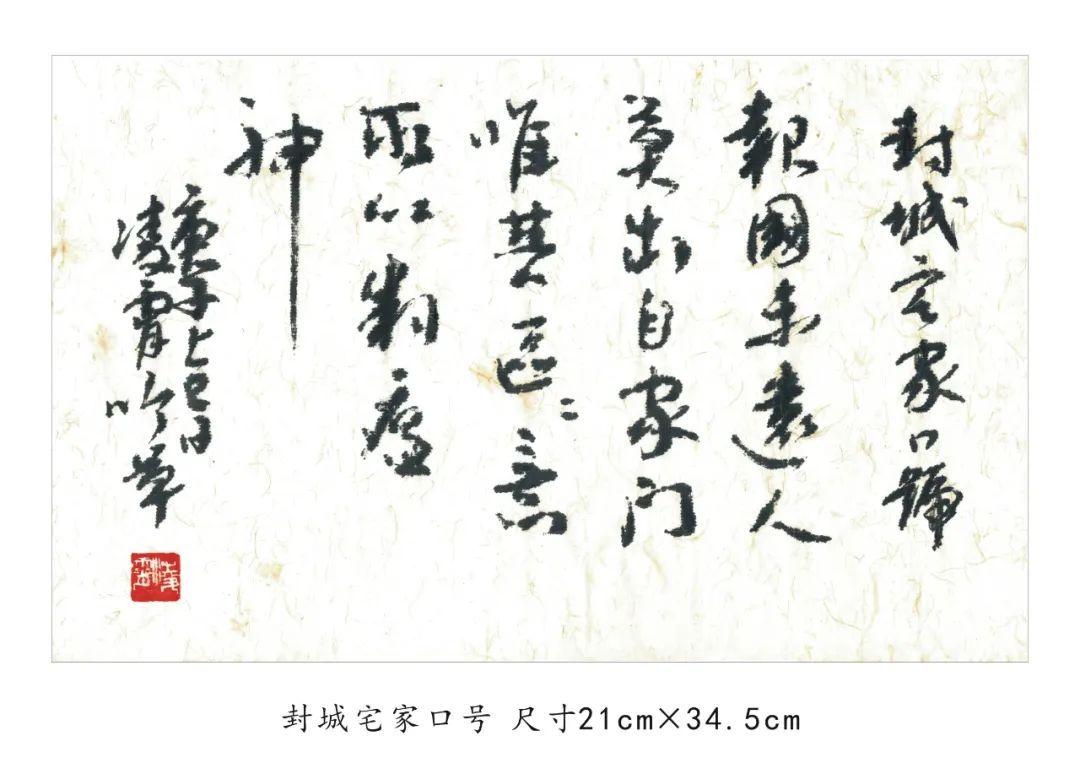 封城宅家口號
報國未遠人
莫出自家门
唯其區〻意
所以制瘟
神
庚子上巳日
凌霄吟草
封城宅家口号 尺寸21cm×34.5cm